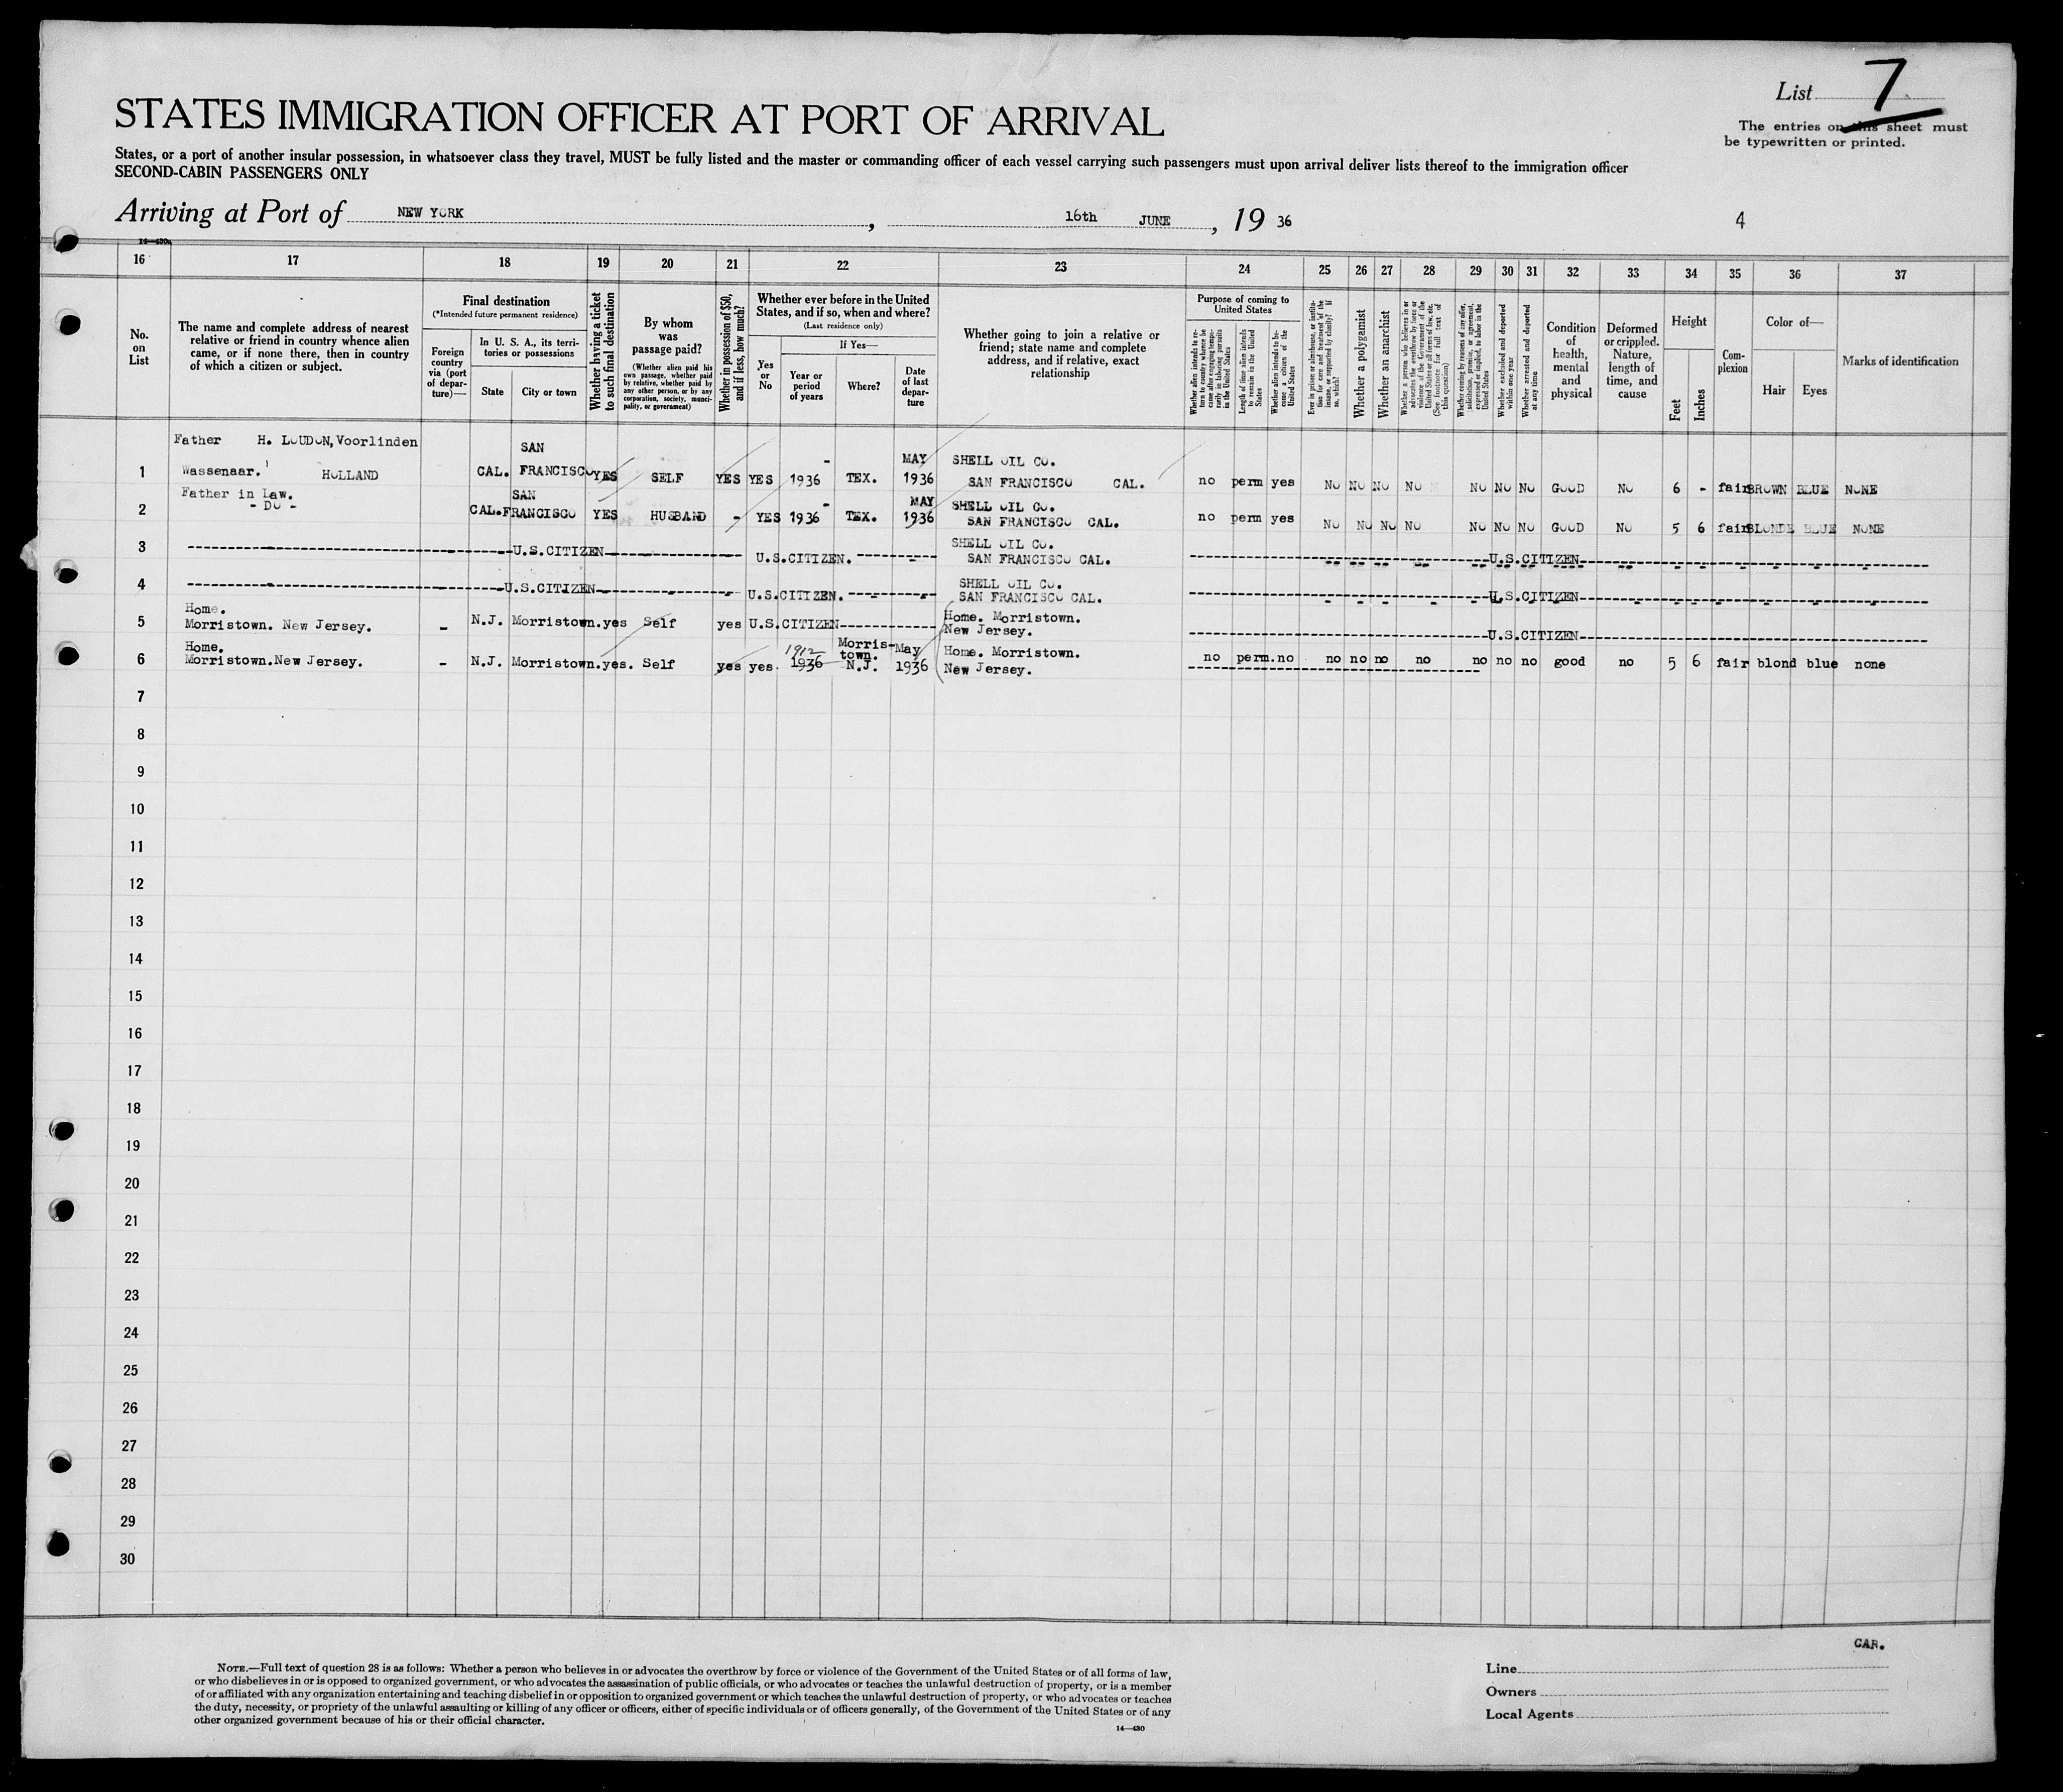 List 7
The entries on this sheet must
be typewritten or printed.
STATES IMMIGRATION OFFICER AT PORT OF ARRIVAL
States, or a port of another insular possession, in whatsoever class they travel, MUST be fully listed and the master or commanding officer of each vessel carrying such passengers must upon arrival deliver lists thereof to the immigration officer
SECOND-CABIN PASSENGERS ONLY
Arriving at Port of NEW YORK, 16th JUNE, 19 36 4
14—430a
16 17 18 19 20 21 22 23 24 25 26 27 28 29 30 31 32 33 34 35 36 37
No. on List
The name and complete address of nearest relative or friend in country whence alien came, or if none there, then in country of which a citizen or subject.
Final destination
(*Intended future permanent residence)
Foreign country via (port of departure)—
In U. S. A., its territories or possessions
State
City or town
Whether having a ticket to such final destination
By whom was passage paid?
(Whether alien paid his own passage, whether paid by relative, whether paid by any other person, or by any corporation, society, municipality, or government)
Whether in possession of $50, and if less, how much?
Whether ever before in the United States, and if so, when and where?
(Last residence only)
Yes or No
If Yes—
Year or period of years
Where?
Date of last departure
Whether going to join a relative or friend; state name and complete address, and if relative, exact relationship
Purpose of coming to United States
Whether alien intends to return to country whence he came after engaging temporarily in laboring pursuits in the United States
Length of time alien intends to remain in the United States
Whether alien intends to become a citizen of the United States
Ever in prison or almshouse, or institution for care and treatment of the insane, or supported by charity? If so, which?
Whether a polygamist
Whether an anarchist
Whether a person who believes in or advocates the overthrow by force or violence of the Government of the United States or all forms of law, etc. (See footnote for full text of this question)
Whether coming by reasons of any offer, solicitation, promise, or agreement, expressed or implied, to labor in the United States
Whether excluded and deported within one year
Whether arrested and deported at any time
Condition of health, mental and physical
Deformed or crippled. Nature, length of time, and cause
Height
Feet
Inches
Complexion
Color of—
Hair
Eyes
Marks of identification
Father H. LOUDON, Voorlinden SAN MAY SHELL OIL CO.
1 Wassenaar. HOLLAND CAL. FRANCISCO YES SELF YES YES 1936 TEX. 1936 SAN FRANCISCO CAL. no perm yes NO NO NO NO NO NO NO GOOD NO 6 - fair BROWN BLUE NONE
Father in Law. SAN MAY SHELL OIL CO.
2 - DO - CAL. FRANCISCO YES HUSBAND - YES 1936 TEX. 1936 SAN FRANCISCO CAL. no perm yes NO NO NO NO NO NO NO GOOD NO 5 6 fair BLONDE BLUE NONE
SHELL OIL CO.
3 U.S.CITIZEN U.S.CITIZEN. SAN FRANCISCO CAL. U.S.CITIZEN
SHELL OIL CO.
4 U.S.CITIZEN U.S.CITIZEN. SAN FRANCISCO CAL. U.S.CITIZEN
Home. Home. Morristown.
5 Morristown. New Jersey. - N.J. Morristown. yes Self yes U.S.CITIZEN New Jersey. U.S.CITIZEN
Home. 1912 Morris-town. May Home. Morristown.
6 Morristown.New Jersey. - N.J. Morristown. yes. Self yes yes. 1936 N.J. 1936 New Jersey. no perm. no no no no no no no no good no 5 6 fair blond blue none
7
8
9
10
11
12
13
14
15
16
17
18
19
20
21
22
23
24
25
26
27
28
29
30
NOTE.—Full text of question 28 is as follows: Whether a person who believes in or advocates the overthrow by force or violence of the Government of the United States or of all forms of law,
or who disbelieves in or is opposed to organized government, or who advocates the assassination of public officials, or who advocates or teaches the unlawful destruction of property, or is a member
of or affiliated with any organization entertaining and teaching disbelief in or opposition to organized government or which teaches the unlawful destruction of property, or who advocates or teaches
the duty, necessity, or propriety of the unlawful assaulting or killing of any officer or officers, either of specific individuals or of officers generally, of the Government of the United States or of any
other organized government because of his or their official character.
14—430
CAR.
Line
Owners
Local Agents